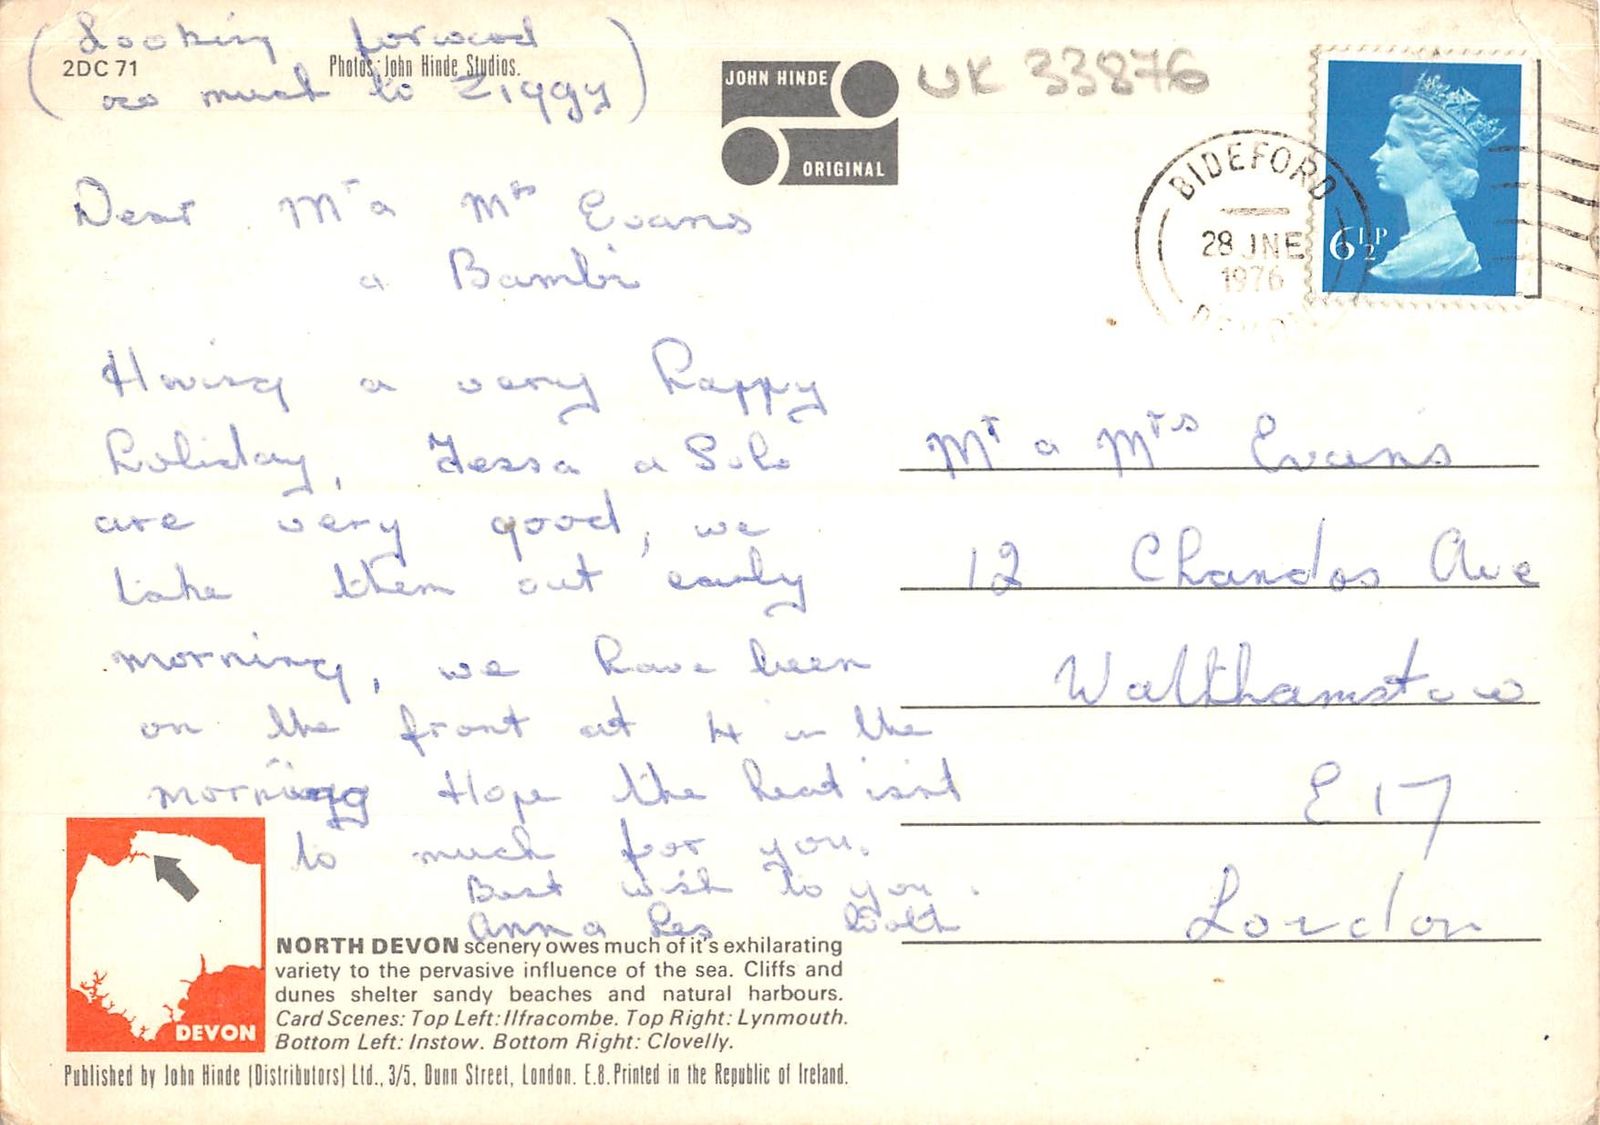 (Looking forward
so much to Ziggy)
2DC 71
Photos: John Hinde Studios.
JOHN HINDE
ORIGINAL
UK 33876
BIDEFORD
28 JNE
1976
6½P
Dear Mr a Mrs Evans
a Bambi
Having a very happy
holiday, Tessa a Solo
are very good, we
take them out early
morning, we have been
on the front at 4 in the
morning Hope the heat isnt
to much for you.
Best wish to you.
Anna Les
Mr a Mrs Evans
12 Chandos Ave
Walthamstow
E17
London
DEVON
NORTH DEVON scenery owes much of it's exhilarating
variety to the pervasive influence of the sea. Cliffs and
dunes shelter sandy beaches and natural harbours.
Card Scenes: Top Left: Ilfracombe. Top Right: Lynmouth.
Bottom Left: Instow. Bottom Right: Clovelly.
Published by John Hinde (Distributors) Ltd., 3/5, Dunn Street, London. E.8. Printed in the Republic of Ireland.